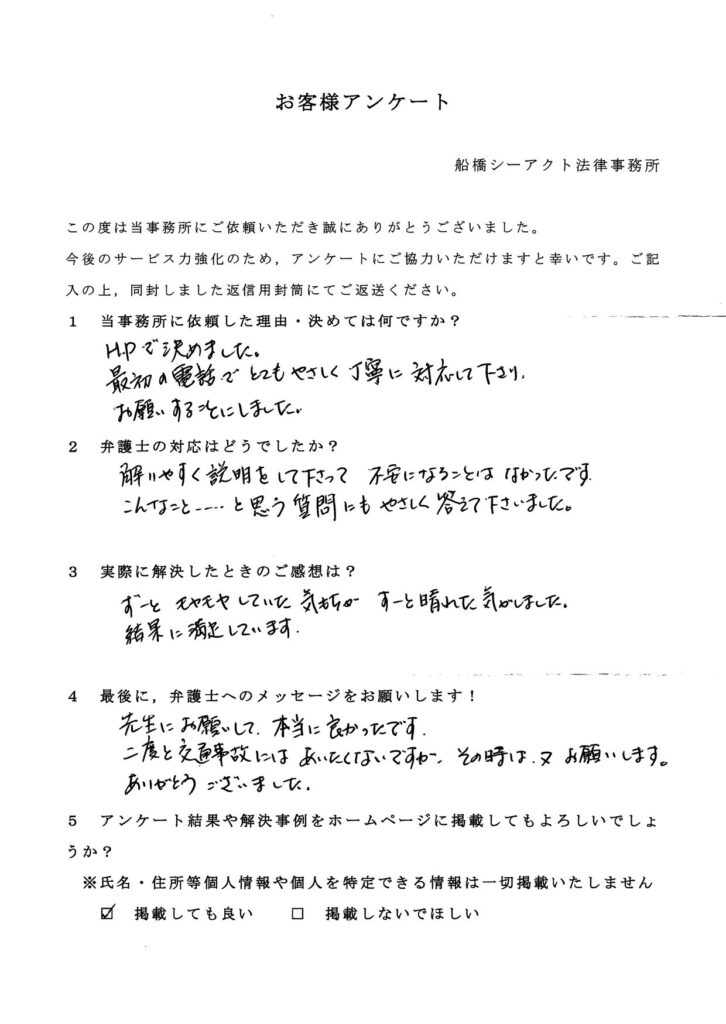 お客様アンケート
船橋シーアクト法律事務所
この度は当事務所にご依頼いただき誠にありがとうございました。
今後のサービス力強化のため，アンケートにご協力いただけますと幸いです。ご記
入の上，同封しました返信用封筒にてご返送ください。
1 当事務所に依頼した理由・決めては何ですか？
H.Pで決めました。
最初の電話でとてもやさしく丁寧に対応して下さり、
お願いすることにしました。
2 弁護士の対応はどうでしたか？
解りやすく説明をして下さって 不安になることは なかったです.
こんなこと……と思う質問にも やさしく答えて下さいました。
3 実際に解決したときのご感想は？
ずーと モヤモヤしていた 気もちが すーと晴れた気がしました。
結果に満足しています.
4 最後に，弁護士へのメッセージをお願いします！
先生にお願いして、本当に良かったです.
二度と交通事故には あいたくないですが、その時は、又 お願いします。
ありがとう ございました.
5 アンケート結果や解決事例をホームページに掲載してもよろしいでしょ
うか？
※氏名・住所等個人情報や個人を特定できる情報は一切掲載いたしません
☑ 掲載しても良い □ 掲載しないでほしい